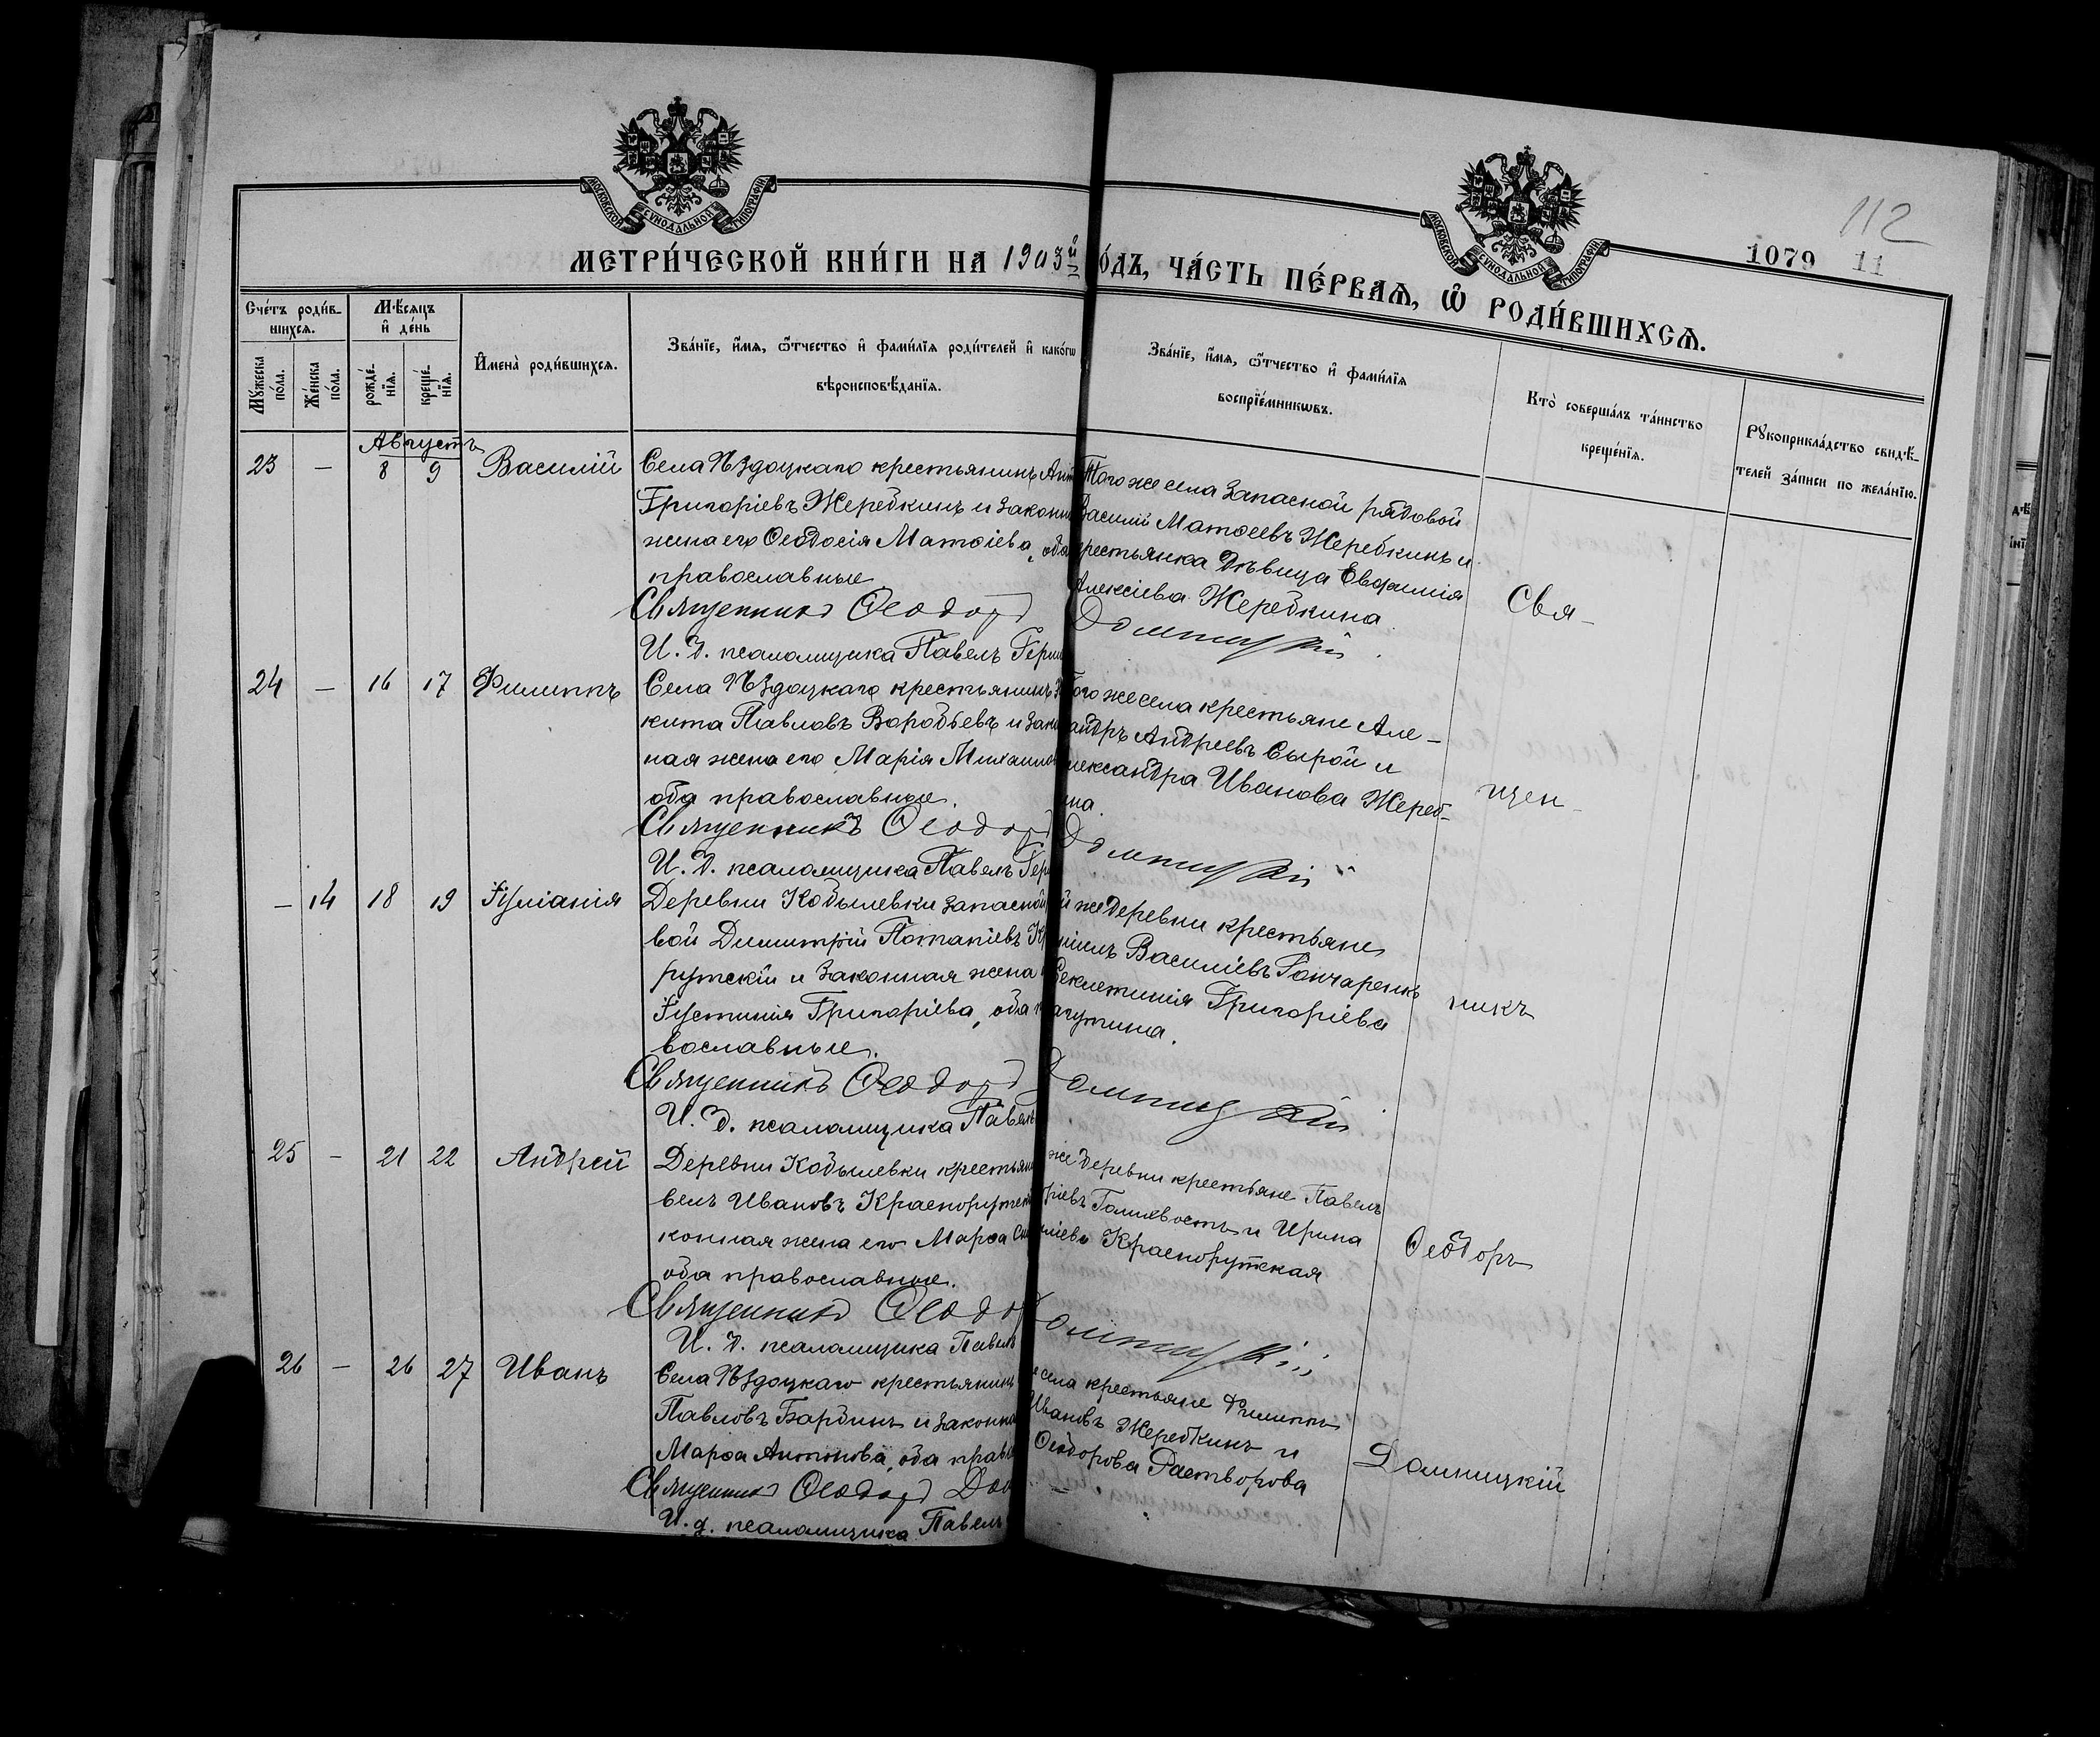 МОСКОВСКОЙ СУНОДАЛЬНОЙ ТИПОГРАФІИ
МОСКОВСКОЙ СУНОДАЛЬНОЙ ТИПОГРАФІИ
112
1079 11
МЕТРИ́ЧЕСКОЙ КНИ́ГИ НА 1903й
О́ДЪ, ЧА́СТЬ ПЕ́РВАѦ, Ѡ҆ РОДИ́ВШИХСѦ.
Сче́тъ роди́в-
шихсѧ.
Мꙋ́жеска по́ла.
Же́нска по́ла.
Мѣ́сѧцъ
и҆ де́нь
рожде́нїѧ.
креще́нїѧ.
И҆мена̀ роди́вшихсѧ.
Зва́нїе, и҆́мѧ, ѻ҆́тчество и҆ фами́лїѧ роди́телей и҆ како́гѡ
вѣроисповѣ́данїѧ.
Зва́нїе, и҆́мѧ, ѻ҆́тчество и҆ фами́лїѧ
воспрїе́мникѡвъ.
Кто̀ соверша́лъ та́инство
креще́нїѧ.
Рꙋкоприкла́дство свидѣ́-
телей за́писи по жела́нїю.
Августъ
23 — 8 9 Василій
Села Ѣздоцкаго крестьянинъ Ант
Григоріевъ Жеребкинъ и законн
жена его Ѳеодосія Матѳіева, оба
православные.
Священникъ Ѳеодоръ
И. д. псаломщика Павелъ
Того же села запасной рядовой
Василій Матѳеевъ Жеребкинъ и
крестьянка дѣвица Евфимія
Алексіева Жеребкина.
Домницкій
Свя-
24 — 16 17 Филиппъ
Села Ѣздоцкаго крестьянинъ
кита Павловъ Воробьевъ и зако
ная жена его Марія Михаилов
оба православные.
Священникъ Ѳеодоръ
И. д. псаломщика Павелъ
ого же села крестьяне Але-
андръ Андреевъ Сырой и
лександра Иванова Жереб-
ина.
Домницкій
щен-
— 14 18 19 Іуліанія
Деревни Кобылевки запасной
вой Димитрій Потапіевъ К
рутскій и законная жена
Іустинія Григоріева, оба п
вославные.
Священникъ Ѳеодоръ
И. д. псаломщика Павелъ
й же деревни крестьяне
ніилъ Василіевъ Гончаренко
Секлетинія Григоріева
Домницкій
никъ
25 — 21 22 Андрей
Деревни Кобылевки крестьян
велъ Ивановъ Краснорутск
конная жена его Марѳа
оба православные.
Священникъ Ѳеодор
И. д. псаломщика Павелъ
же деревни крестьяне Павелъ
ріевъ и Ирина
Краснорутская
омницкій
Ѳеодоръ
26 — 26 27 Иванъ
Села Ѣздоцкаго крестьянинъ
Павловъ Бардинъ и законна
Марѳа Антонова, оба право
Священникъ Ѳеодоръ Дом
И. д. псаломщика Павелъ
села крестьяне Филиппъ
Ивановъ Жеребкинъ и
Ѳеодорова Растворова
Домницкій